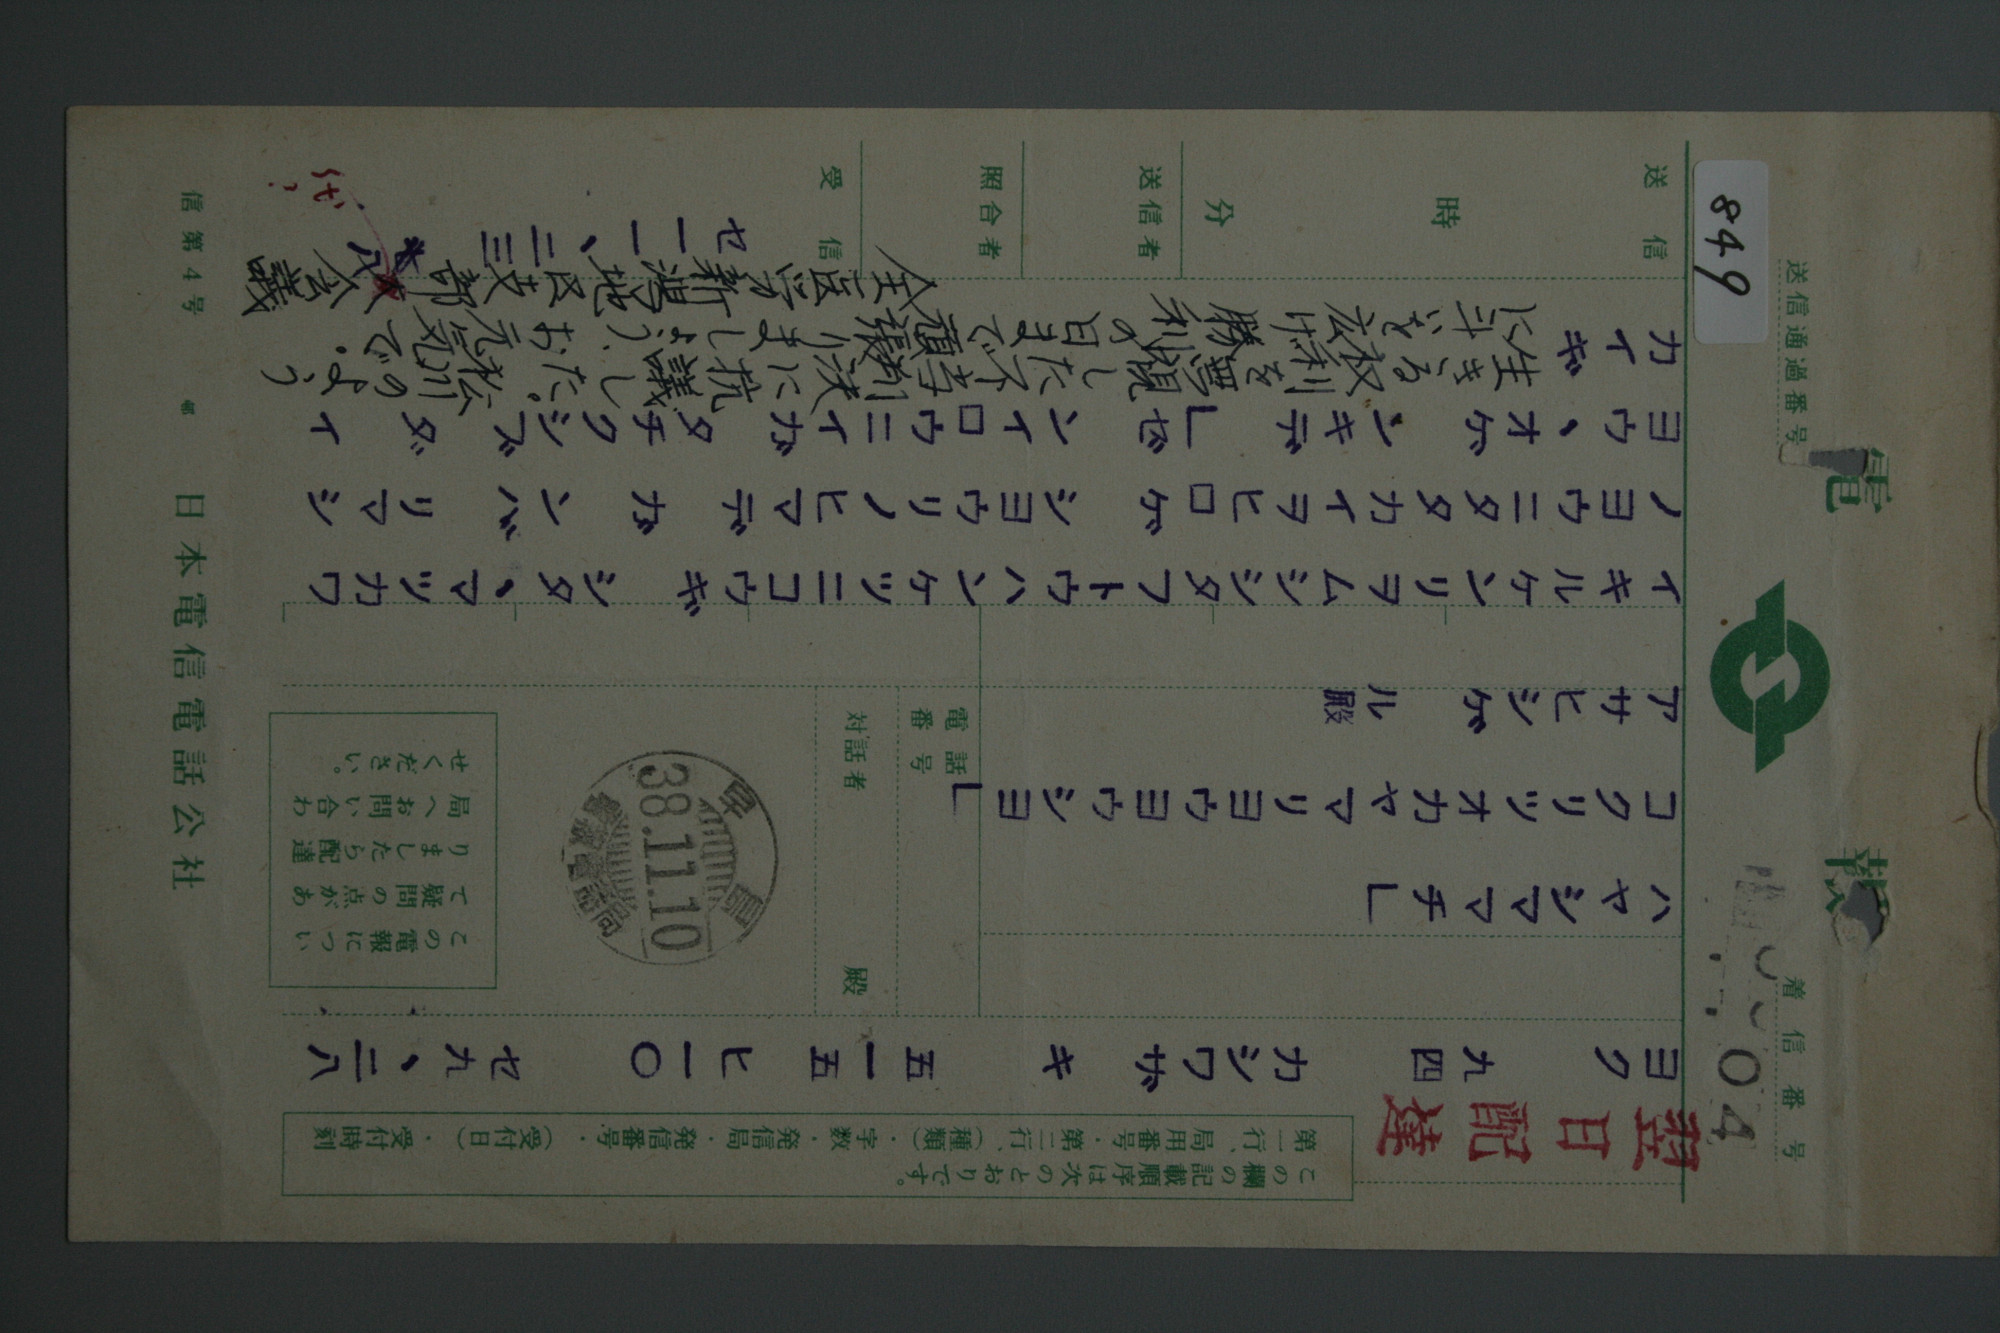 電報
送信通過番号
849
着信番号
04
翌日配達
この欄の記載順序は次のとおりです。
第一行、局用番号・第二行、(種類)
字数・発信局・発信番号・(受付日)・受付時刻
ヨク 九四 カシワザキ 五一五 ヒ一〇 セ九、二八
ハヤシママチ」
コクリツオカヤマリヨウヨウシヨ」
アサヒシゲル殿
電話番号
対話者 殿
38.11.10
この電報について疑問の点がありましたら配達局へお問い合わせください。
イキルケンリヲムシシタフトウハンケツニコウギシタ、マツカワ
ノヨウニタタカイヲヒロゲシヨウリノヒマデガンバリマシ
ヨウ、オゲンキデ」ゼンイロウニイガタチクシブダイ
カイギ
生きる権利を無視した不当判決に抗議した。松川のよう
に斗いを広げ勝利の日まで頑張りましよう、お元気で。
全医労新潟地区支部 会議
送信 時 分
送信者
照合者
受信
セ一一、二三
信第4号 日本電信電話公社